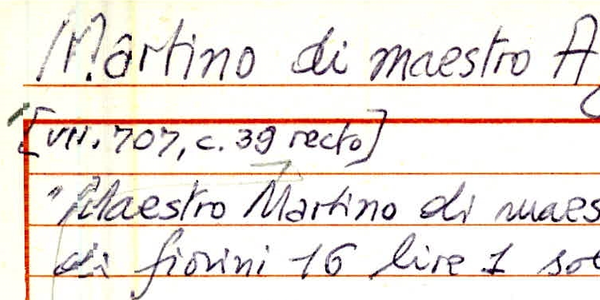 Martino di maestro A
[VII. 707, c. 39 recto]
"Maestro Martino di maes
di fiorini 16 lire 1 sol